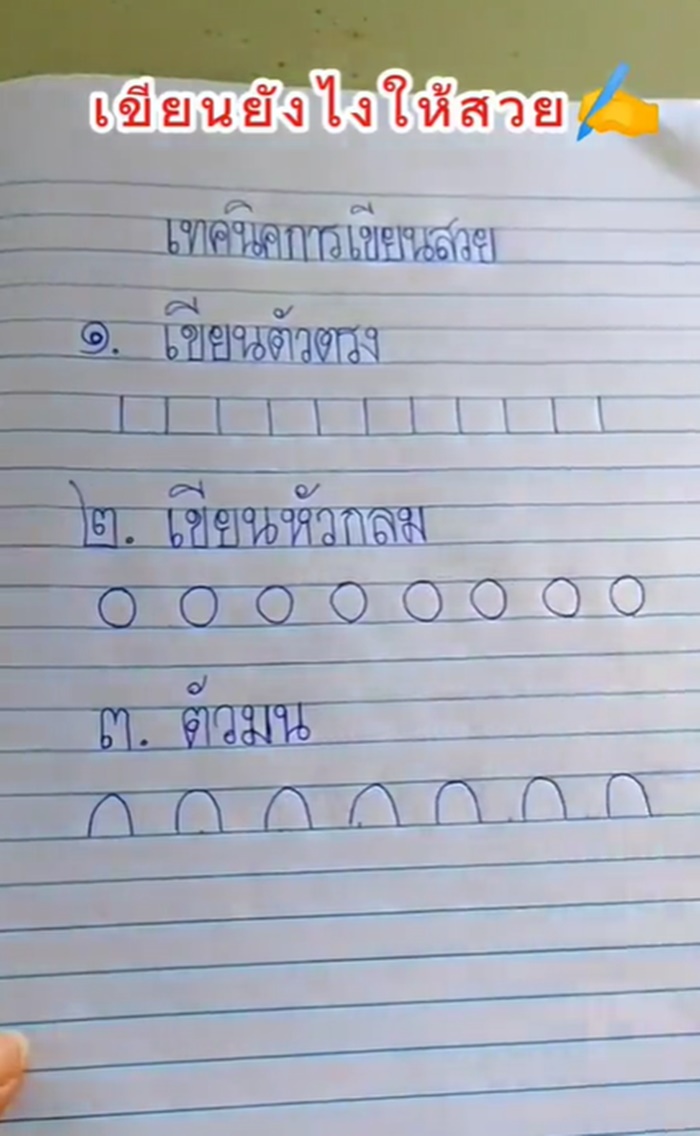 เขียนยังไงให้สวย✍️
เทคนิคการเขียนสวย
๑. เขียนตัวตรง
๒. เขียนหัวกลม
๓. ตัวมน